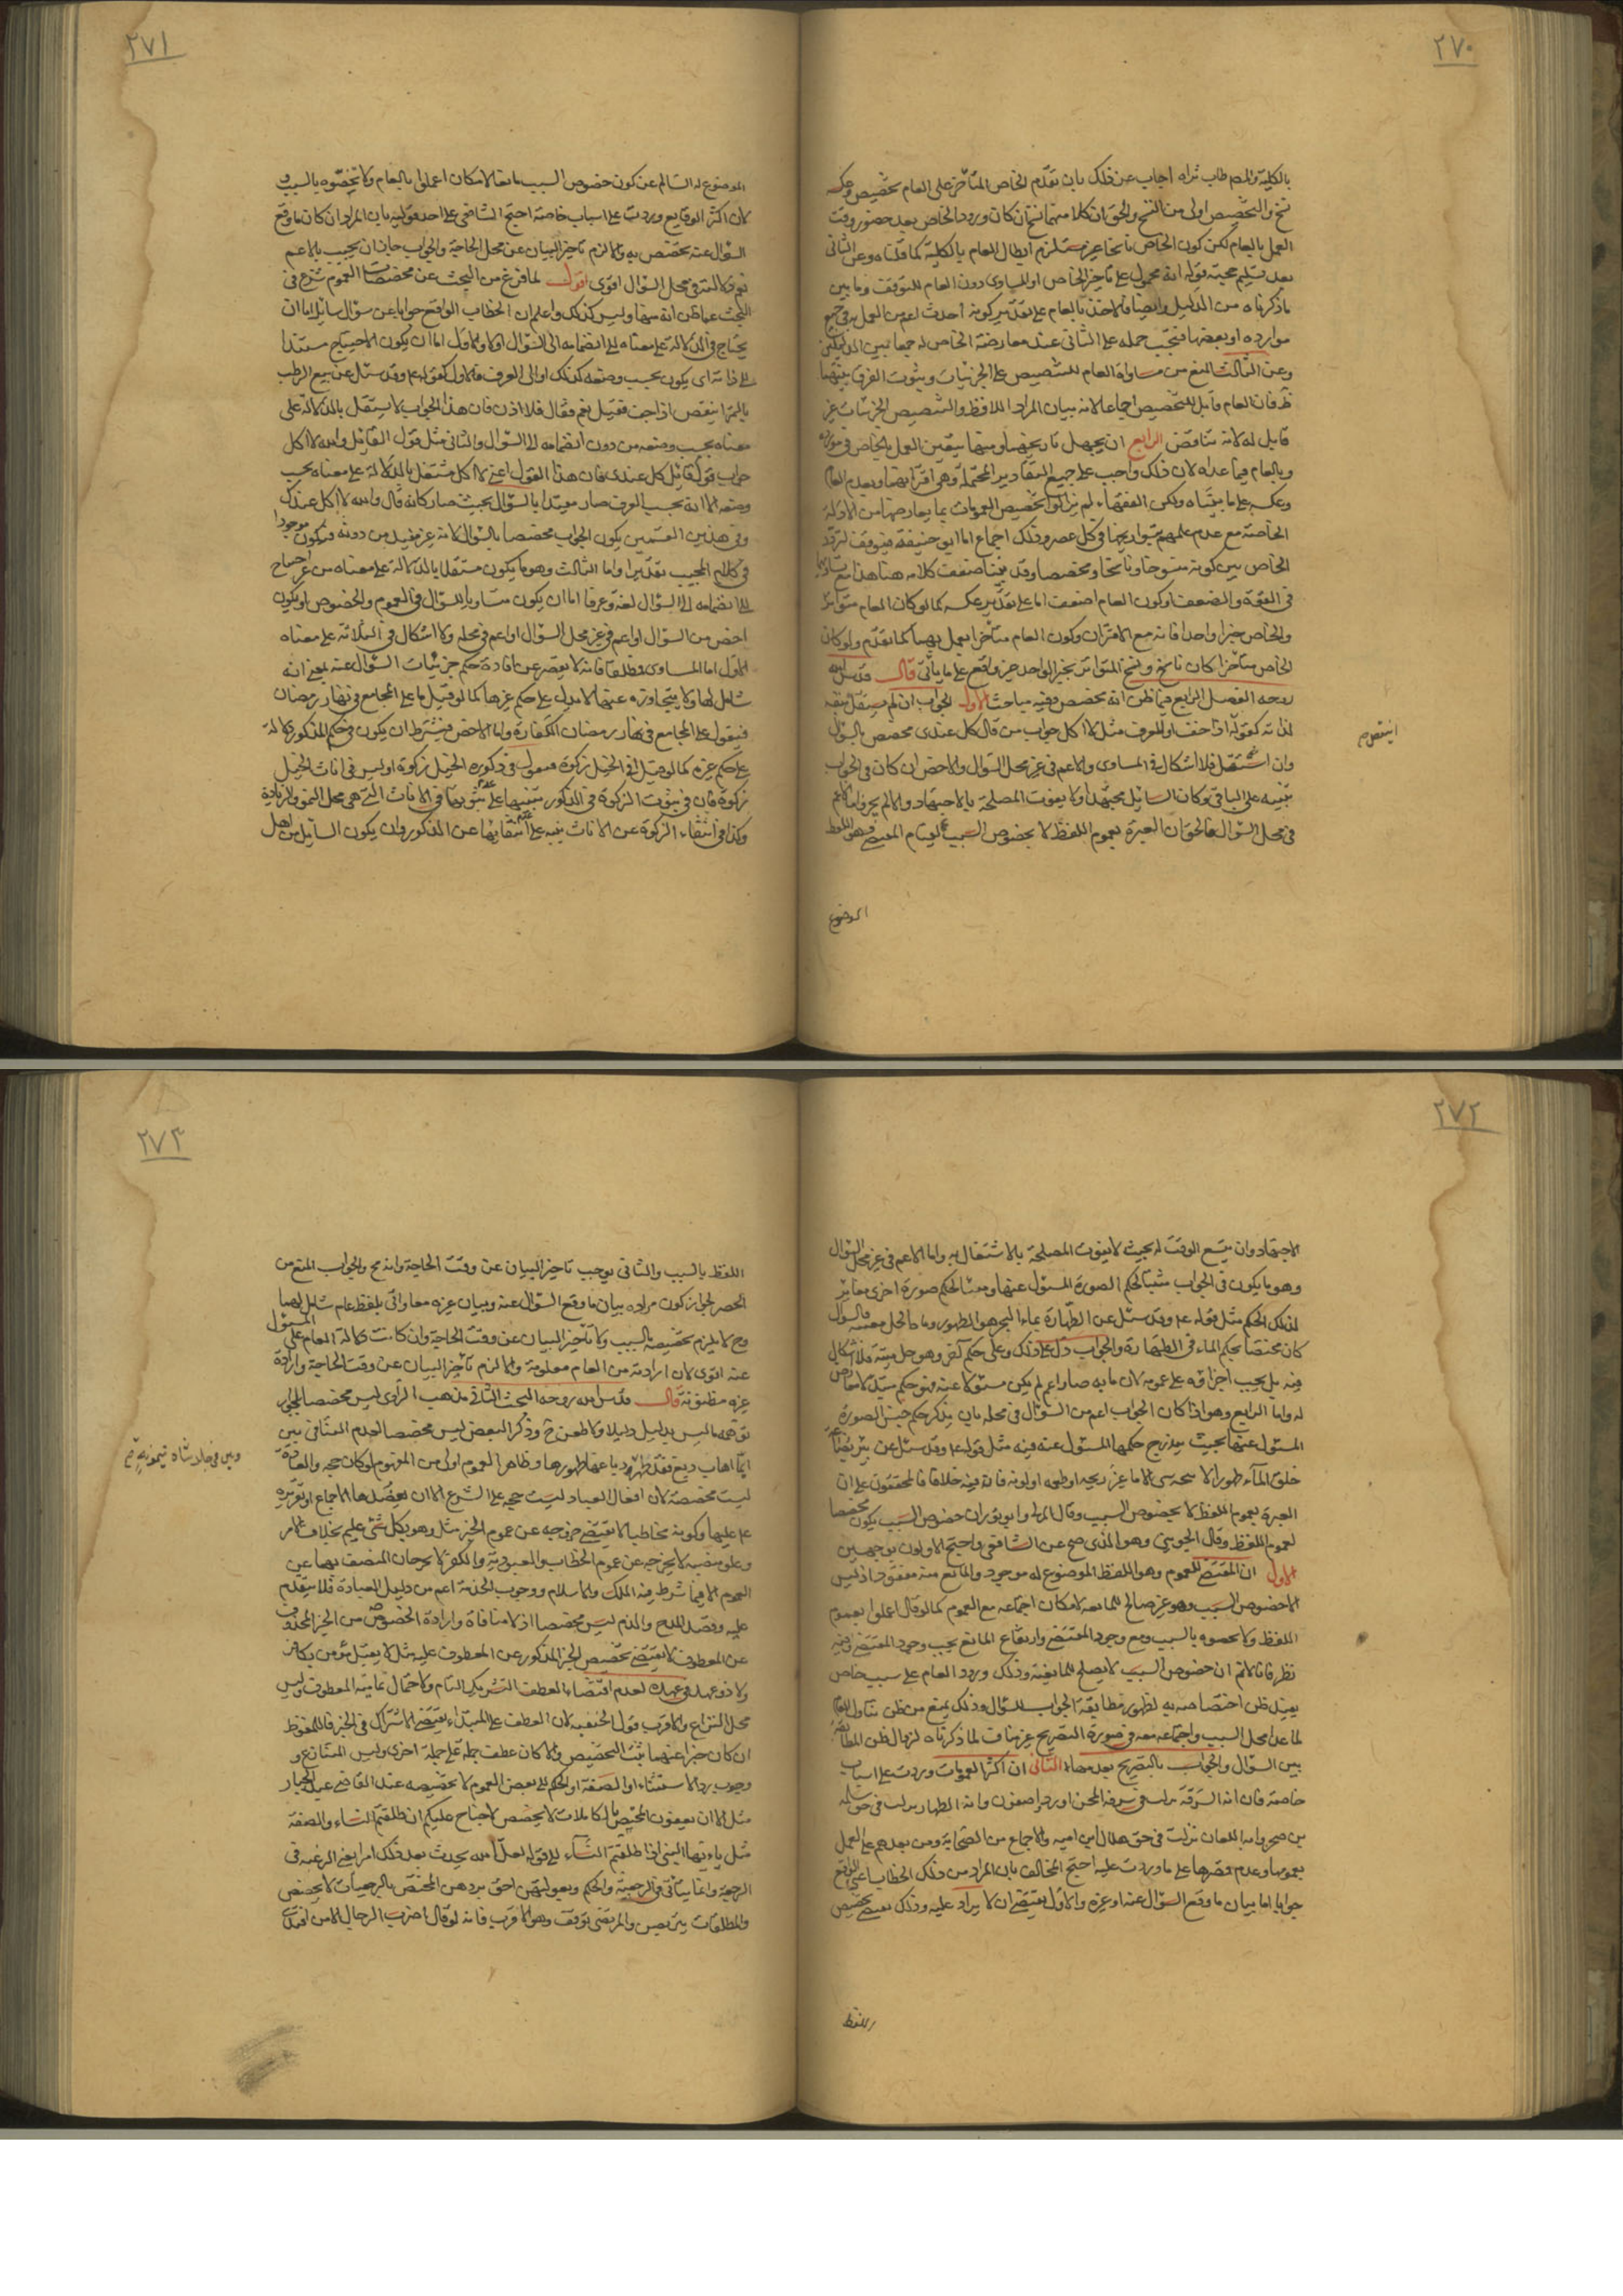 ٢٧٠
بالكلية والمص طاب ثراه اجاب عن ذلك بان تقدم الخاص المتأخر على العام تخصيص وعكسه
نسخ والتخصيص اولى من النسخ والحق ان كلا منهما نسخ ان كان ورود الخاص بعد حضور وقت
العمل بالعام لكن كون الخاص ناسخا غير مستلزم ابطال العام بالكلية كما قلناه وعن الثانى
بعد تسليم حجية قوله انه محمول على تأخير الخاص او المساوى دون العام للتوقف وما بين
ما ذكرناه من الدليل وايضا فالاخذ بالعام على تقدير كونه احدث اعم من العمل به فى جميع
موارده او بعضها فيجب حمله على الثانى عند معارضة الخاص له جمعا بين الدليلين
وعن الثالث المنع من مساواة العام للتنصيص على الجزئيات وثبوت الفرق بينهما
ظ فان العام قابل للتخصيص اجماعا لانه بيان المراد اللافظ والتنصيص الجزئيات غير
قابل له لانه تناقض الرابع ان يجهل تاريخهما ومنهما يتعين العمل بالخاص فى مورده
وبالعام فيما عداه لان ذلك واجب على جميع التقادير المحتملة وهى اقترانهما وتقدم العام
وعكسه على ما بيناه ولكن الفقهاء لم يزالوا تخصيص العمومات بما يعارضها من الادلة
الخاصة مع عدم علمهم بتواريخها فى كل عصر وذلك اجماع اما ابو حنيفة فيتوقف لتردد
الخاص بين كونه منسوخا وناسخا ومخصصا وقد بينا ضعف كلامه هنا هذا مع تساويهما
فى القوة والضعف او كون العام اضعف اما على تقدير عكسه كما لو كان العام متواترا
والخاص خبرا واحدا فانه مع الاقتران وكون العام متأخرا يعمل بهما كما تقدم ولو كان
الخاص متأخرا كان ناسخ ونسخ المتواتر بخبر الواحد غير واقع على ما يأتى قال قدس الله
روحه الفصل الرابع فيما ظن انه مخصص وفيه مباحث الاول الجواب ان لم يستقل بنفسه
لذاته كقوله اذا جف او للعرف مثل لا اكل جواب من قال كل عندى مخصص بالسؤال
وان استقل فلا اشكال فى المساوى والاعم فى غير محل السؤال والاخص ان كان فى الجواب
تنبيه على الباقى وكان السائل مجتهدا ولا يفوت المصلحة بالاجتهاد والا لم يجز واما الاعم
فى محل السؤال فالحق ان العبرة بعموم اللفظ لا بخصوص السبب لقيام المقتضى وهو اللفظ
الموضوع
اينتقص م
٢٧١
الموضوع له السالم عن كون خصوص السبب مانعا لامكان اعملوا بالعام ولا تخصوه بالسبب و
لان اكثر الوقايع وردت على اسباب خاصة احتج الشافعى على احد قوليه بان المراد ان كان ما وقع
السؤال عنه يختص به والا لزم تاخير البيان عن محل الحاجة والجواب جاز ان يجيب بالاعم
نعم دلالته فى محل السؤال اقوى اقول لما فرغ من البحث عن مخصصات العموم شرع فى
البحث عما ظن انه منها وليس كذلك واعلم ان الخطاب الواقع جوابا عن سؤال سائل اما ان
يحتاج فى الدلالة على معناه الى انضمامه الى السؤال او لا والاول اما ان يكون الاحتياج مستندا
الى ذاته اى يكون بحسب وضعه كذلك او الى العرف فالاول كقوله ع وقد سئل عن بيع الرطب
بالتمر اينقص اذا جف فقيل نعم فقال فلا اذن فان هذا الجواب لا يستقل بالدلالة على
معناه بحسب وضعه من دون انضمامه الى السؤال والثانى مثل قول القائل والله لا اكل
جواب قول قائل كل عندى فان هذا القول اعنى لا اكل مستقل بالدلالة على معناه بحسب
وضعه الا انه بحسب العرف صار مقيدا بالسؤال بحيث صار كانه قال والله لا اكل عندك
وفى هذين القسمين يكون الجواب مختصا بالسؤال لانه غير مفيد من دونه فيكون موجودا
فى كلام المجيب تقديرا واما الثالث وهو ما يكون مستقلا بالدلالة على معناه من غير احتياج
الى انضمامه الى السؤال لغة وعرفا اما ان يكون مساويا للسؤال فى العموم والخصوص او يكون
اخص من السؤال او اعم فى غير محل السؤال او اعم فى محله ولا اشكال فى الثلاثة على معناه
الاول اما المساوى مطلقا فانه لا يقصر عن افادة حكم جزئيات السؤال عنه بمعنى انه
شامل لها ولا يتجاوزه عنها الا بدليل على حكم غيرها كما لو قيل ما على المجامع فى نهار رمضان
فيقول على المجامع فى نهار رمضان الكفارة واما الاخص فيشترط ان يكون فى حكم المذكور دلالة
على حكم غيره كما لو قيل افى الخيل زكوة فيقول فى ذكورة الخيل زكوة او ليس فى اناث الخيل
زكوة فان فى ثبوت الزكوة فى الذكور تنبيها على ثبوتها فى الاناث التى هى محل النمو والزيادة
وكذا فى انتفاء الزكوة عن الاناث تنبيه على انتفائها عن الذكور وان يكون السائل من اهل
٢٧٢
الاجتهاد وان يتسع الوقت له بحيث لا يفوت المصلحة بالاشتغال به واما الاعم فى غير محل السؤال
وهو ما يكون فى الجواب مثبتا لحكم الصورة المسئول عنها ومثبتا لحكم صورة اخرى مغاير
لذلك الحكم مثل قوله ع وقد سئل عن الطهارة بماء البحر هو الطهور ماؤه الحل ميتته فالسؤال
كان مختصا بحكم الماء فى الطهارة والجواب دل على ذلك وعلى حكم آخر وهو حل ميتته فلا اشكال
فيه بل يجب اجراؤه على عمومه لان ما به صار اعم لم يكن مسئولا عنه فهو حكم مبتدا لا معارض
له واما الرابع وهو اذا كان الجواب اعم من السؤال فى محله بان يذكر حكم جنس الصورة
المسئول عنها بحيث يندرج حكمها المسئول عنه فيه مثل قوله ع وقد سئل عن بئر بضاعة
خلق الماء طهورا لا ينجسه شىء الا ما غير ريحه او طعمه او لونه فانه فيه خلافا فالمحققون على ان
العبرة بعموم اللفظ لا بخصوص السبب وقال المزنى وابو ثور ان خصوص السبب يكون مخصصا
لعموم اللفظ وقال الجوينى وهو الذى صح عن الشافعى واحتج الاولون بوجهين
الاول ان المقتضى للعموم وهو اللفظ الموضوع له موجود والمانع منه مفقود اذ ليس
الا خصوص السبب وهو غير صالح للمانعية لامكان اجتماعه مع العموم كما لو قال اعملوا بعموم
اللفظ ولا تخصوه بالسبب ومع وجود المقتضى وارتفاع المانع يجب وجود المقتضى وفيه
نظر فانا لا نم ان خصوص السبب لا يصلح للمانعية وذلك ورود العام على سبب خاص
يفيد ظن اختصاصه به لظهور مطابقة الجواب للسؤال وذلك يمنع من ظن تناول اللفظ
لما عدا محل السبب واجتماعه معه فى صورة التصريح غير مناف لما ذكرناه لزوال ظن المطابقة
بين السؤال والجواب بالتصريح بعدمها الثانى ان اكثر العمومات وردت على اسباب
خاصة فان اية السرقة نزلت فى سرقة المجن او رداء صفوان واية الظهار نزلت فى حق سلمة
بن صخر واية اللعان نزلت فى حق هلال ابن امية والاجماع من الصحابة ومن بعدهم على العمل
بعمومها وعدم قصرها على ما وردت عليه احتج المخالف بان المراد من ذلك الخطاب اعنى الواقع
جوابا اما بيان ما وقع السؤال عنه او غيره والاول يقتضى ان لا يزاد عليه وذلك يقتضى تخصيص
اللفظ
٢٧٣
اللفظ بالسبب والثانى يوجب تاخير البيان عن وقت الحاجة وانه مح والجواب المنع من
الحصر لجواز كون مراده بيان ما وقع السؤال عنه وبيان غيره معا واتى بلفظ عام شامل لهما
وح لا يلزم تخصيصه بالسبب ولا تأخير البيان عن وقت الحاجة وان كانت دلالة العام على المسئول
عنه اقوى لان ارادته من العام معلومة والا لزم تأخير البيان عن وقت الحاجة وارادة
غيره مظنونة قال قدس الله روحه البحث الثانى مذهب الراوى ليس مخصصا لجواز
توهمه ما ليس بدليل دليلا ولا طعن ح وذكر البعض ليس مخصصا لعدم التنافى بين
ايما اهاب دبغ فقد طهر ودباغها طهورها وظاهر العموم اولى من المفهوم لو كان حجة والعادة
ليست مخصصة لان افعال العباد ليست حجة على الشرع الا ان يعضدها الاجماع او تقريره
ع عليها وكونه مخاطبا لا يقتضى خروجه عن عموم الخبر مثل وهو بكل شىء عليم بخلاف الامر
وعلو منصبه لا يخرجه عن عموم الخطاب والعبودية والكفر لا يخرجان المتصف بهما عن
العموم الا فيما شرط فيه الملك والاسلام ووجوب الخدمة اعم من دليل العبادة فلا يتقدم
عليه وقصد المدح والذم ليس مخصصا اذ لا منافاة وارادة الخصوص من الخبر المحذوف
عن المعطوف لا يقتضى تخصيص الخبر المذكور عن المعطوف عليه مثل لا يقتل مؤمن بكافر
ولا ذو عهد فى عهده لعدم اقتضاء العطف التشريك التام ولاحتمال تمامية المعطوف وليس
محل النزاع والاقرب قول الحنفية لان العطف على المبتداء يقتضى الاشتراك فى الخبر فالملفوظ
ان كان خبرا عنهما ثبت التخصيص والا كان عطف جملة على جملة اخرى وليس المتنازع و
وجوب رد الاستثناء او الصفة او الحكم الى بعض العموم لا تخصيصه عند القاضى عبد الجبار
مثل الا ان يعفون المختص بالكاملات لا يخصص لا جناح عليكم ان طلقتم النساء والصفة
مثل يا ايها النبى اذا طلقتم النساء الى قوله لعل الله يحدث بعد ذلك امرا يعنى الرغبة فى
الرجعة وانما يتأتى فى الرجعية والحكم وبعولتهن احق بردهن المختص بالرجعيات لا يخصص
والمطلقات يتربصن والمرتضى توقف وهو الاقرب فانه لو قال اضرب الرجال الا من افتدى